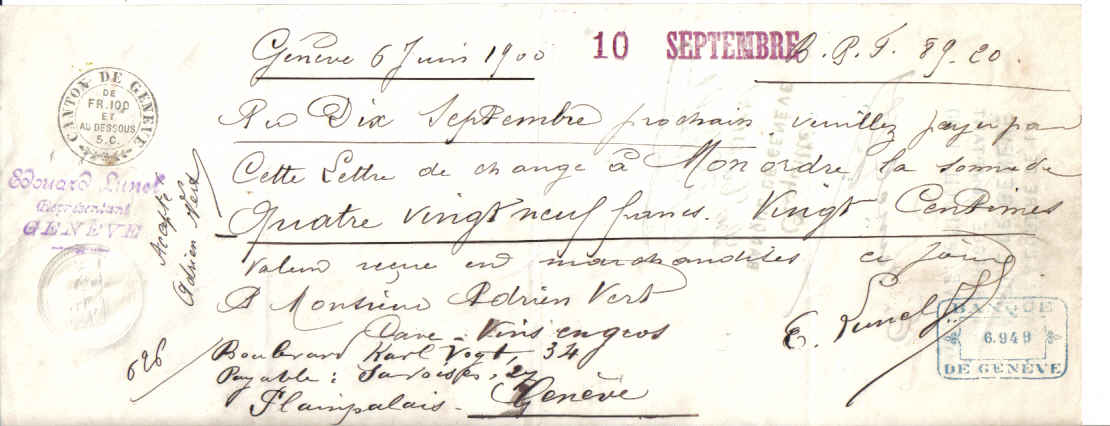 Genève 6 Juin 1900
10 SEPTEMBRE
B.P.F. 89.20.
CANTON DE GENÈVE
DE
FR.100
ET
AU DESSOUS
5.C.
Au Dix Septembre prochain veuillez payer par
Cette Lettre de change à Mon ordre la somme de
Quatre vingt neuf francs. Vingt Centimes
Valeur reçue en marchandises ce jour
A Monsieur Adrien Vert
Vins en gros
Boulevard Karl Vogt, 34
Payable: Savoises, 27
Plainpalais - Genève
Edouard Lunel
Représentant
GENÈVE
Accepté
Adrien Vert
E. Lunel
BANQUE
6.949
DE GENÈVE